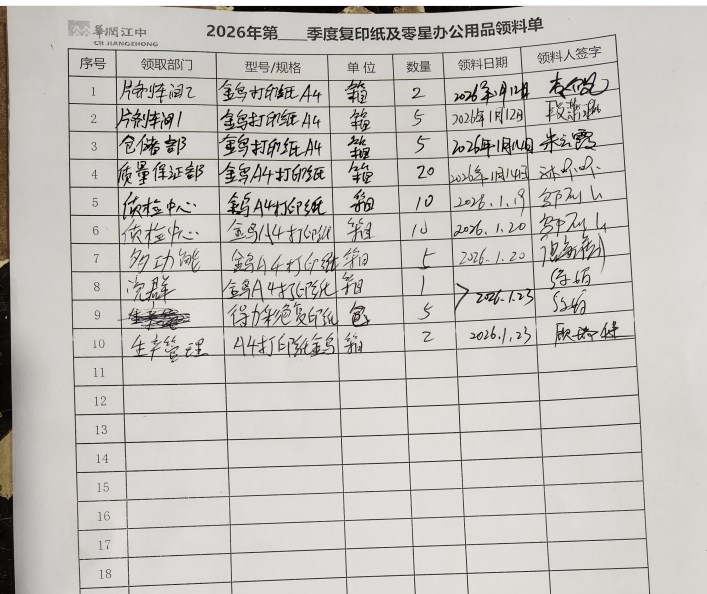 華潤江中
CR JIANGZHONG
2026年第___季度复印纸及零星办公用品领料单
序号 领取部门 型号/规格 单 位 数量 领料日期 领料人签字
1 片剂车间2 金鸟打印纸A4 箱 2 2026年1月12日
2 片剂车间1 金鸟打印纸A4 箱 5 2026年1月12日
3 仓储部 金鸟打印纸A4 箱 5 2026年1月14日
4 质量保证部 金鸟A4打印纸 箱 20 2026年1月14日
5 质检中心 金鸟A4打印纸 箱 10 2026.1.19
6 质检中心 金鸟A4打印纸 箱 10 2026.1.20
7 多功能 金鸟A4打印纸 箱 5 2026.1.20
8 党群 金鸟A4打印纸 箱 1 2026.1.23
9 得力彩色复印纸 包 5
10 生产管理 A4打印纸金鸟 箱 2 2026.1.23
11
12
13
14
15
16
17
18